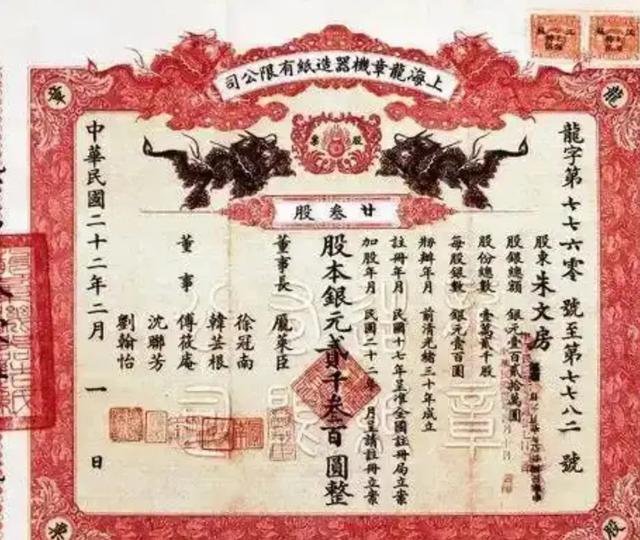 上海龍章機器造紙有限公司
股票
廿叁股
龍字第七七六零號至第七七八二號
股東朱文房
股銀總額 銀元壹百貳拾萬圓
股份總數 壹萬貳千股
每股銀數 銀元壹百圓
刱辦年月 前清光緒三十年成立
註冊年月 民國十七年呈准全國註冊局立案
加股年月 民國二十二年 月呈請註冊立案
股本銀元貳千叁百圓整
董事長 厲葉臣
董事
徐冠南
韓芸根
傅筱庵
沈聯芳
劉翰怡
中華民國二十二年二月一日
龍
章
股
票